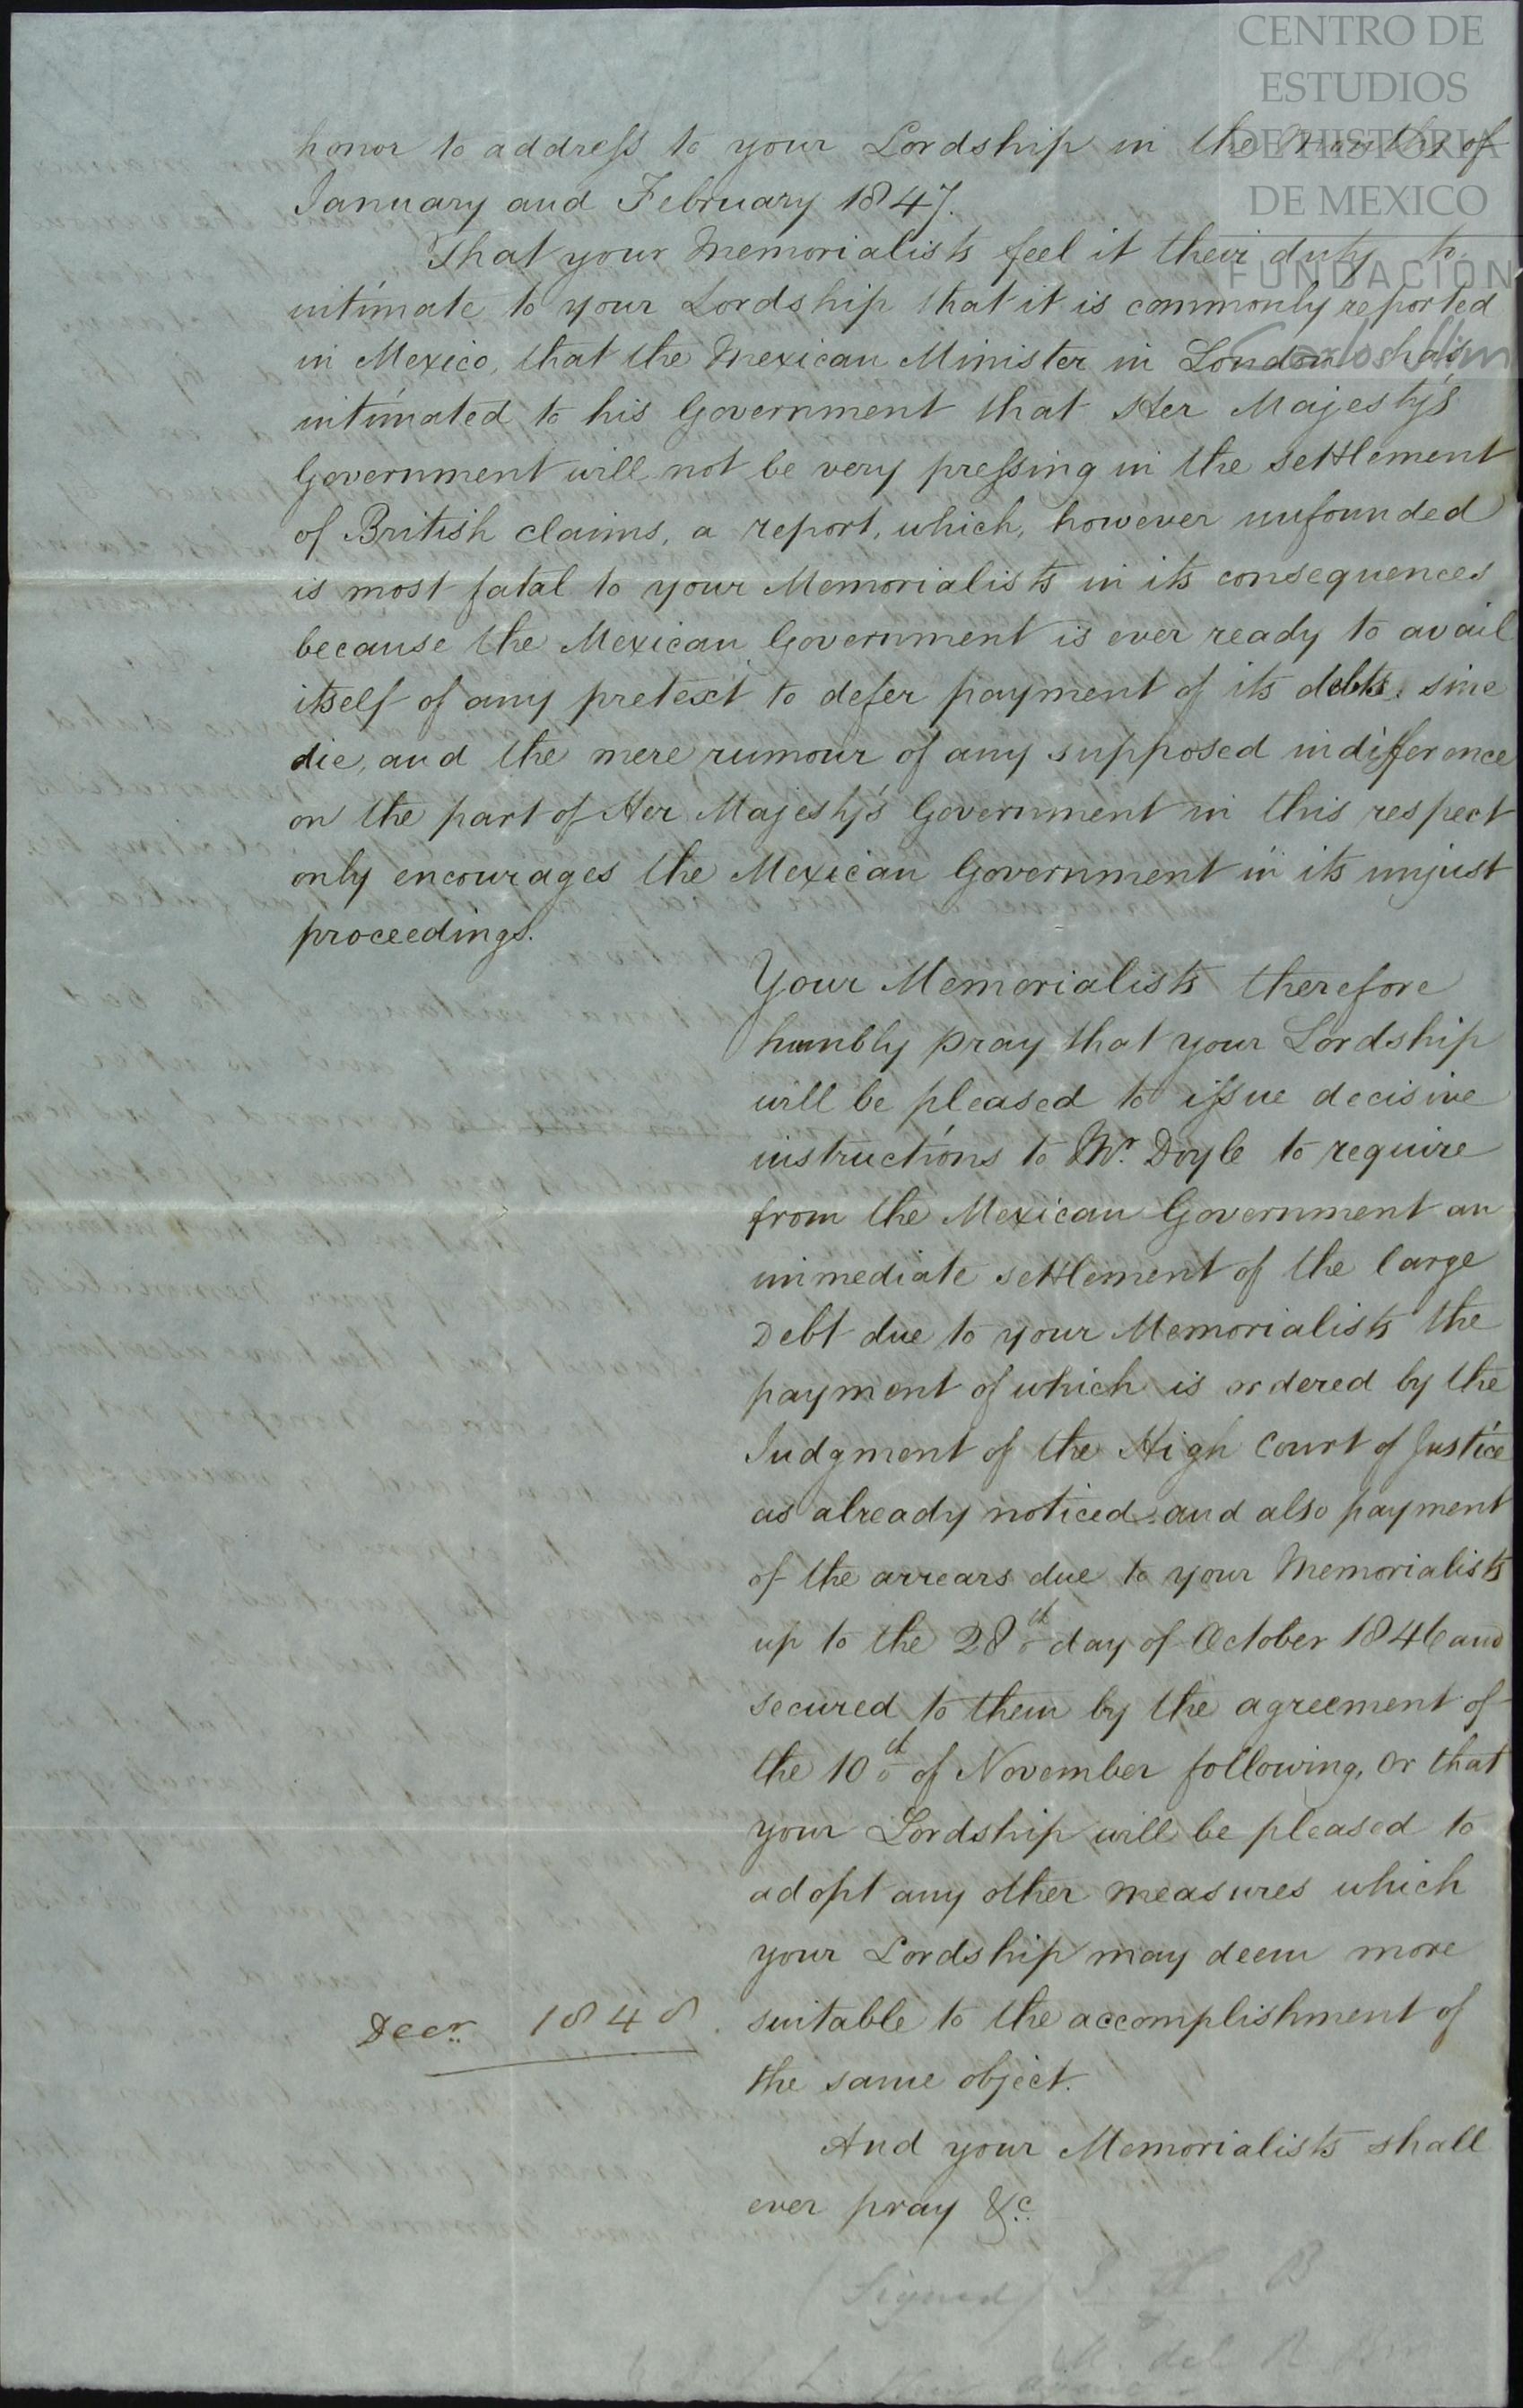 CENTRO DE
ESTUDIOS
DE HISTORIA
DE MEXICO
FUNDACIÓN
Carlos Slim
honor to address to your Lordship in the Months of
January and February 1847.
That your Memorialists feel it their duty to
intimate to your Lordship that it is commonly reported
in Mexico, that the Mexican Minister in London has
intimated to his Government that Her Majesty's
Government will not be very pressing in the settlement
of British claims, a report, which, however unfounded
is most fatal to your Memorialists in its consequences
because the Mexican Government is ever ready to avail
itself of any pretext to defer payment of its debts, sine
die, and the mere rumour of any supposed indifference
on the part of Her Majesty's Government in this respect
only encourages the Mexican Government in its unjust
proceedings.
Your Memorialists therefore
humbly pray that your Lordship
will be pleased to issue decisive
instructions to Mr. Doyle to require
from the Mexican Government an
immediate settlement of the large
Debt due to your Memorialists the
payment of which is ordered by the
Judgment of the High Court of Justice
as already noticed and also payment
of the arrears due to your Memorialists
up to the 28th day of October 1846 and
secured to them by the agreement of
the 10th of November following, or that
your Lordship will be pleased to
adopt any other measures which
your Lordship may deem more
suitable to the accomplishment of
the same object.
Decr. 1848.
And your Memorialists shall
ever pray &c.
(Signed) J. H. B
M. del R